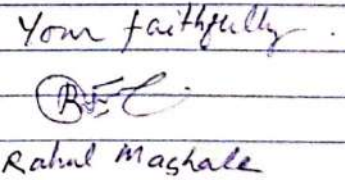 Your faithfully.
Rahul Maghale